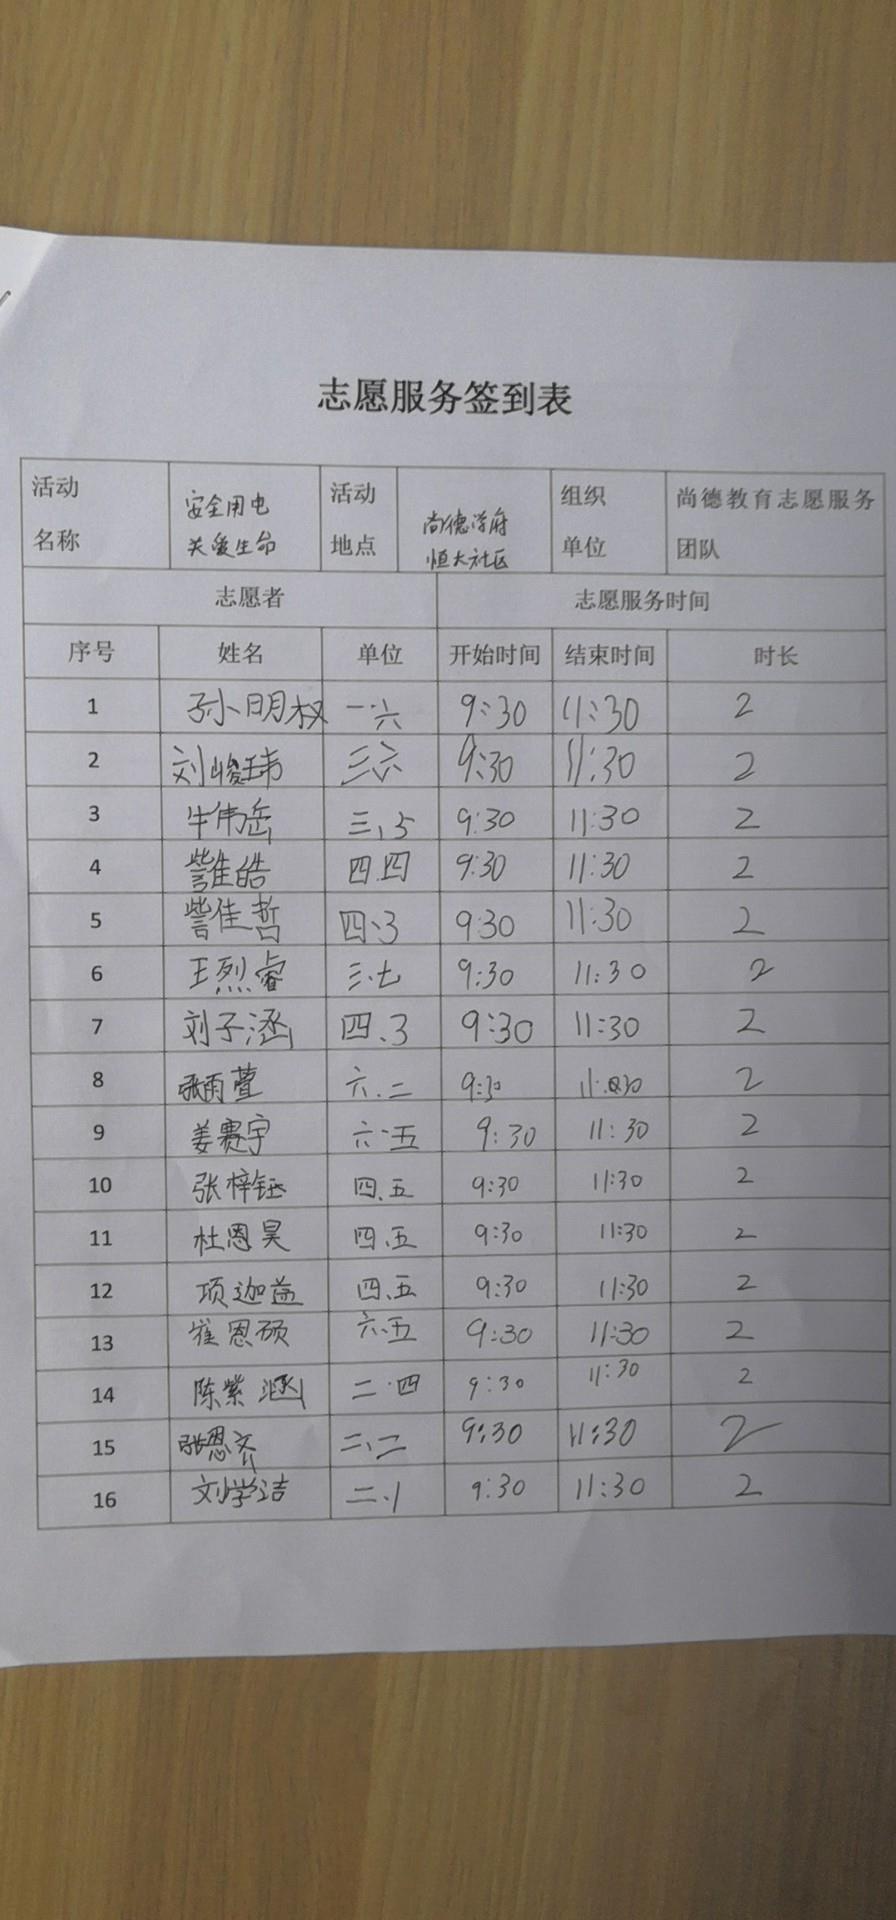 志愿服务签到表
活动名称 安全用电关爱生命 活动地点 尚德学府恒大社区 组织单位 尚德教育志愿服务团队
志愿者 志愿服务时间
序号 姓名 单位 开始时间 结束时间 时长
1 孙明权 一.六 9:30 11:30 2
2 刘峻玮 三六 9:30 11:30 2
3 牛伟岳 三、5 9:30 11:30 2
4 訾隹皓 四.四 9:30 11:30 2
5 訾佳哲 四、3 9:30 11:30 2
6 王烈睿 三.七 9:30 11:30 2
7 刘子涵 四、3 9:30 11:30 2
8 张雨萱 六.二 9:30 11:30 2
9 姜赛宇 六.五 9:30 11:30 2
10 张梓钰 四.五 9:30 11:30 2
11 杜恩昊 四.五 9:30 11:30 2
12 项迦益 四.五 9:30 11:30 2
13 崔恩硕 六.五 9:30 11:30 2
14 陈紫涵 二.四 9:30 11:30 2
15 张恩齐 二、二 9:30 11:30 2
16 刘学洁 二.1 9:30 11:30 2